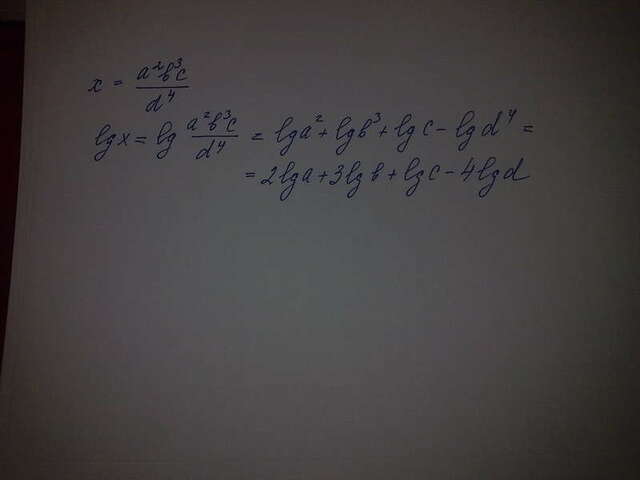 x = a²b³c / d⁴
lg x = lg a²b³c / d⁴ = lg a² + lg b³ + lg c - lg d⁴ =
= 2 lg a + 3 lg b + lg c - 4 lg d